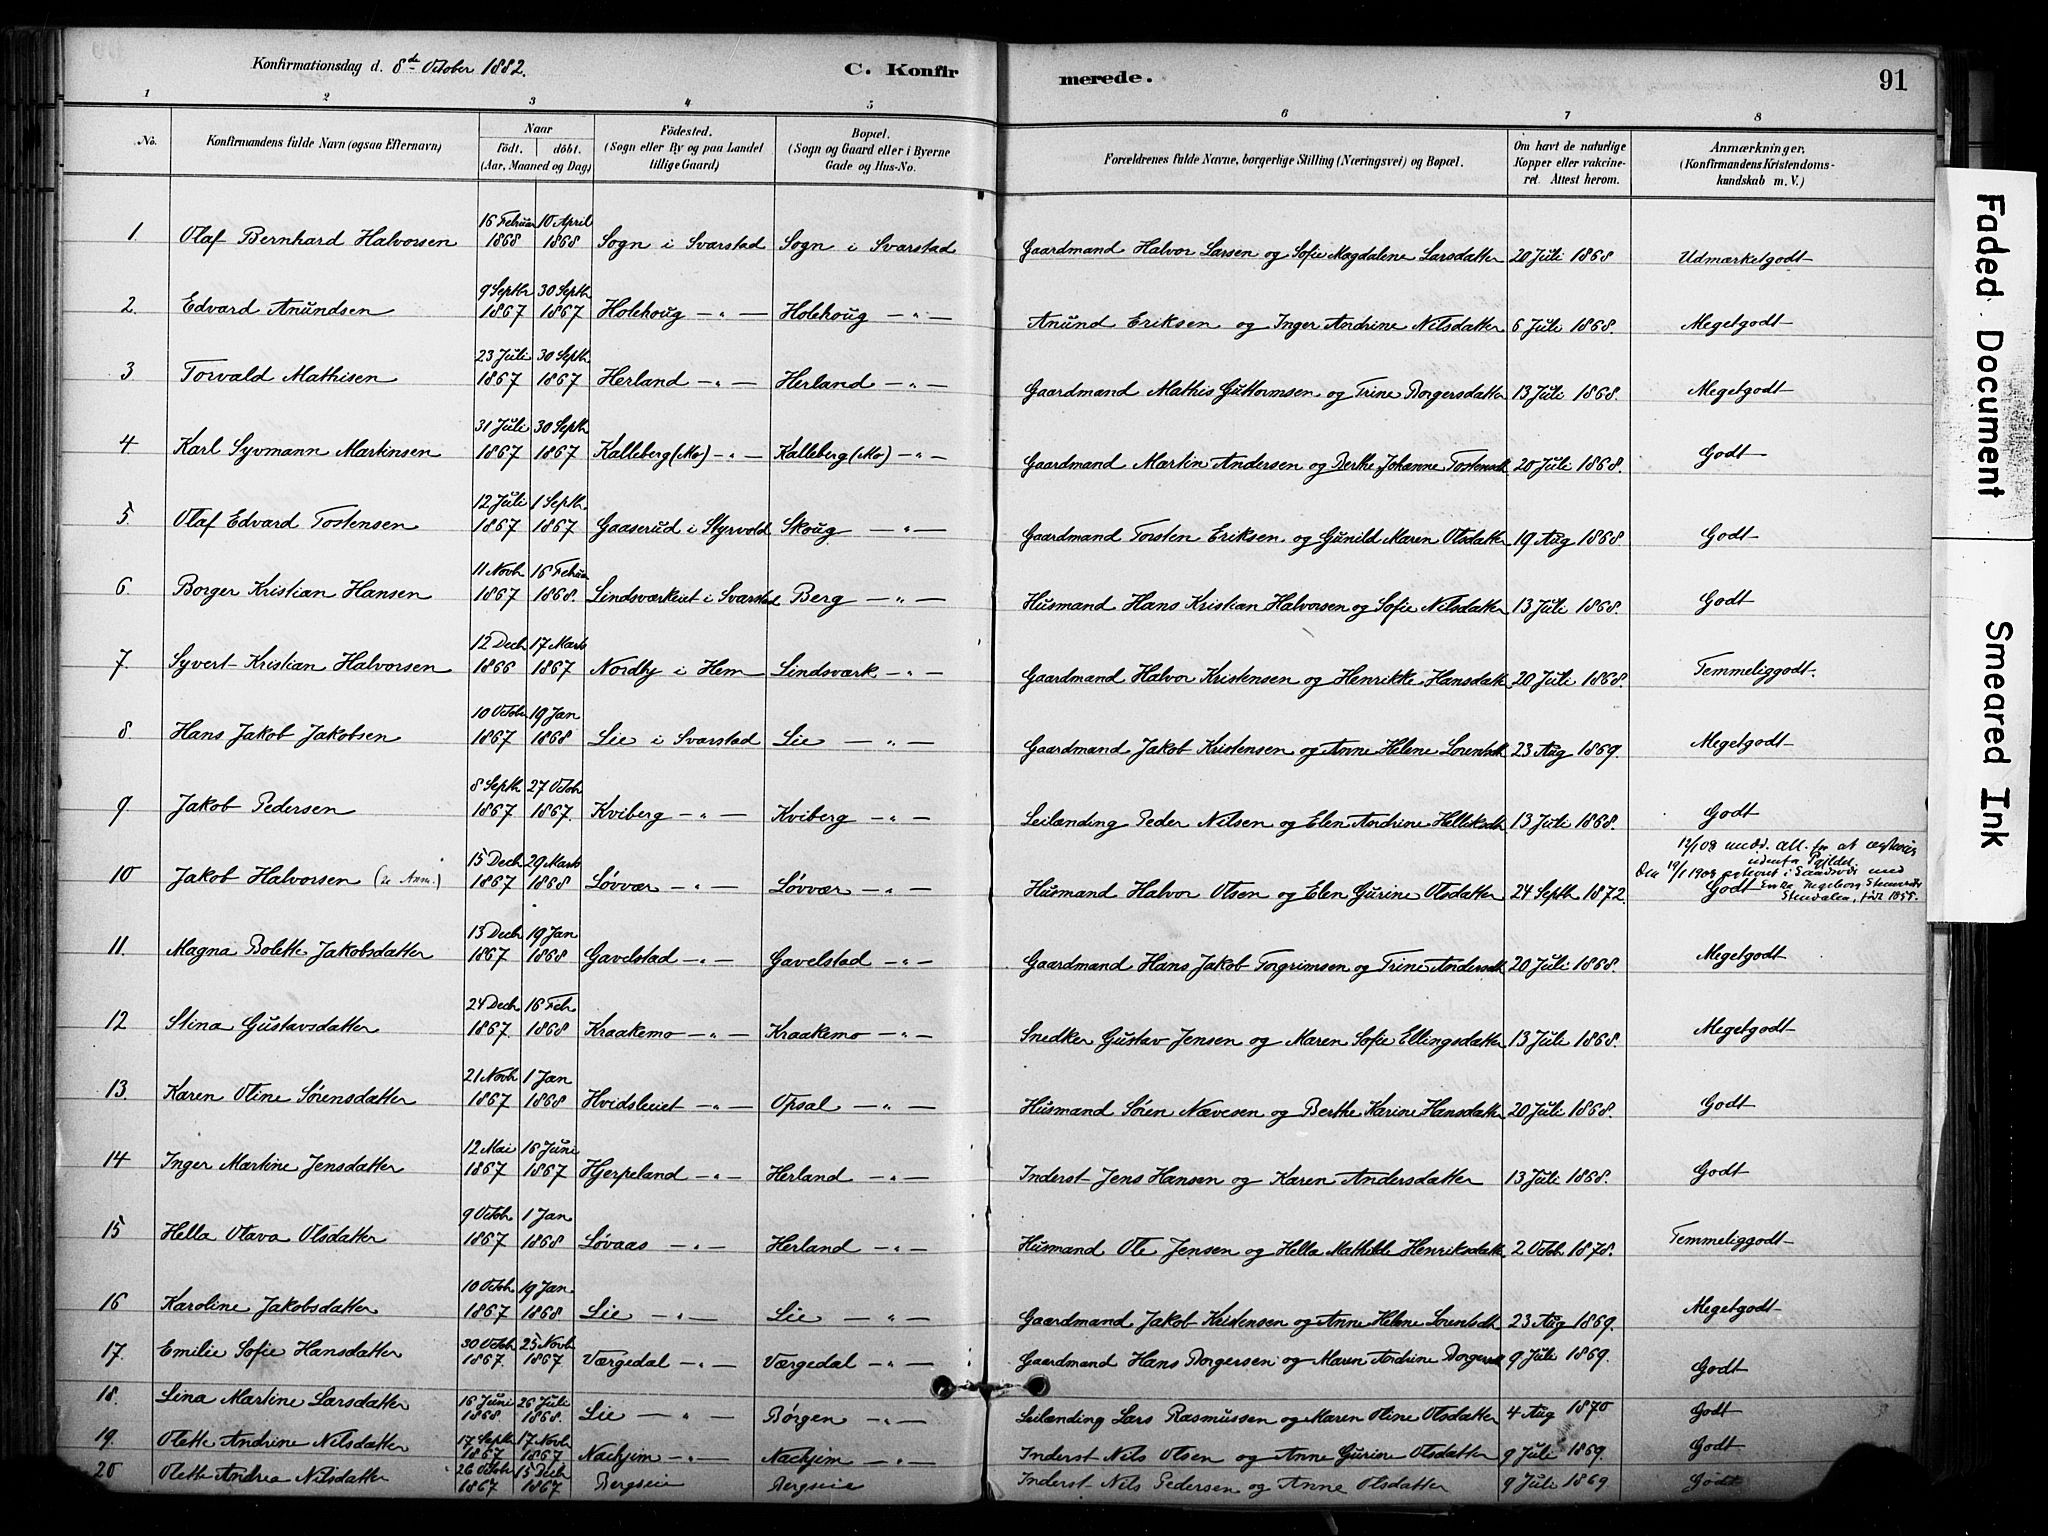 Konfirmationsdag d. 8de October 1882.
C. Konfir
merede.
91
1 2 3 4 5 6 7 8
No. Konfirmandens fulde Navn (ogsaa Efternavn) Naar født. døbt. (Aar, Maaned og Dag) Födested. (Sogn eller By og paa Landet tillige Gaard) Bopæl. (Sogn og Gaard eller i Byerne Gade og Hus-No. Forældrenes fulde Navne, borgerlige Stilling (Næringsvei) og Bopæl. Om havt de naturlige Kopper eller vakcineret. Attest herom. Anmærkninger, (Konfirmandens Kristendomskundskab m. V.)
1. Olaf Bernhard Halvorsen 16 Februar 1868 10 April 1868 Sogn i Svarstad Sogn i Svarstad Gaardmand Halvor Larsen og Sofie Magdalene Larsdatter 20 Juli 1868 Udmærketgodt
2. Edvard Anundsen 9 Septbr 1867 30 Septbr 1867 Holehoug —"— Holehoug —"— Anund Eriksen og Inger Andrine Nilsdatter 6 Juli 1868. Megetgodt
3 Torvald Mathisen 23 Juli 1867 30 Septbr. 1867 Herland —"— Herland —"— Gaardmand Mathis Guttormsen og Trine Borgersdatter 13 Juli 1868. Megetgodt
4 Karl Syvmann Martinsen 31 Juli 1867 30 Septbr 1867 Kalleberg (Mo) —"— Kalleberg (Mo) —"— Gaardmand Martin Andersen og Berthe Johanne Tostensdt 20 Juli 1868. Godt
5. Olaf Edvard Tostensen 12 Juli 1867 1 Septbr 1867 Gaaserud i Styrvold Skoug —"— Gaardmand Torsten Eriksen og Gunild Maren Olsdatter 19 Aug 1868 Godt
6. Borger Kristian Hansen 11 Novbr 1867 16 Februar 1868. Lindsværkeiet i Svarstad Berg —"— Husmand Hans Kristian Halvorsen og Sofie Nilsdatter 13 Juli 1868. Godt
7. Syvert Kristian Halvorsen 12 Decbr 1866 17 Marts 1867 Nordby i Hem Lindsværk —"— Gaardmand Halvor Kristensen og Henrikke Hansdatt 20 Juli 1868. Temmeliggodt.
8. Hans Jakob Jakobsen 10 Octobr 1867 19 Jan 1868 Lie i Svarstad Lie —"— Gaardmand Jakob Kristensen og Anne Helene Lorentsdt 23 Aug 1869. Megetgodt
9. Jakob Pedersen 8 Septbr 1867 27 Octobr 1867. Kviberg —"— Kviberg —"— Leilænding Peder Nilsen og Elen Andrine Helliksdt 13 Juli 1868. Godt
10 Jakob Halvorsen (se Anm.) 15 Decbr 1867 29 Marts 1868 Løvvær —"— Løvvær —"— Husmand Halvor Olsen og Elen Gurine Olsdatter 24 Septbr 1872. Godt
11. Magna Bolette Jakobsdatter 13 Decbr 1867 19 Jan 1868 Gavelstad —"— Gavelstad —"— Gaardmand Hans Jakob Torgrimsen og Trine Andersdt 20 Juli 1868. Megetgodt
12 Stina Gustavsdatter 24 Decbr 1867. 16 Febr 1868 Kraakemo —"— Kraakemo —"— Snedker Gustav Jensen og Maren Sofie Ellingsdatter 13 Juli 1868. Megetgodt
13. Karen Oline Sørensdatter 21 Novbr 1867 1 Jan 1868 Hvidsteiet —"— Opsal —"— Husmand Sören Nævesen og Berthe Karine Hansdatter 20 Juli 1868. Godt
14 Inger Martine Jensdatter 12 Mai 1867 16 Juni 1867 Hjerpeland —"— Herland —"— Inderst Jens Hansen og Karen Andersdatter 13 Juli 1868. Godt
15 Hella Olava Olsdatter 9 Octobr. 1867 1 Jan 1868 Løvaas —"— Herland —"— Husmand Ole Jensen og Hella Mathilde Henriksdatt. 2 Octobr 1878. Temmeliggodt
16 Karoline Jakobsdatter 10 Octobr 1867 19 Jan 1868 Lie —"— Lie —"— Gaardmand Jakob Kristensen og Anne Helene Lorentsdt 23 Aug 1869. Megetgodt
17. Emilie Sofie Hansdatter 30 Octobr 1867. 25 Novbr 1867 Værgedal —"— Værgedal —"— Gaardmand Hans Borgersen og Maren Andrine Borgersdt 9 Juli 1869. Godt
18. Lina Martine Larsdatter 16 Juni 1868. 26 Juli 1868. Lie —"— Börgen —"— Leilænding Lars Rasmussen og Maren Oline Olsdatter 4 Aug 1870 Godt
19. Olette Andrine Nilsdatter 17 Septbr 1867 17 Novbr 1867 Nachjem —"— Nachjem —"— Inderst Nils Olsen og Anne Gurine Olsdatter 9 Juli 1869. Godt
20 Olette Andrea Nilsdatter 26 Octobr 1867 15 Decbr 1867 Bergseie Bergseie Inderst Nils Pedersen og Anne Olsdatter 9 Juli 1869 Godt
Faded Document
Smeared Ink